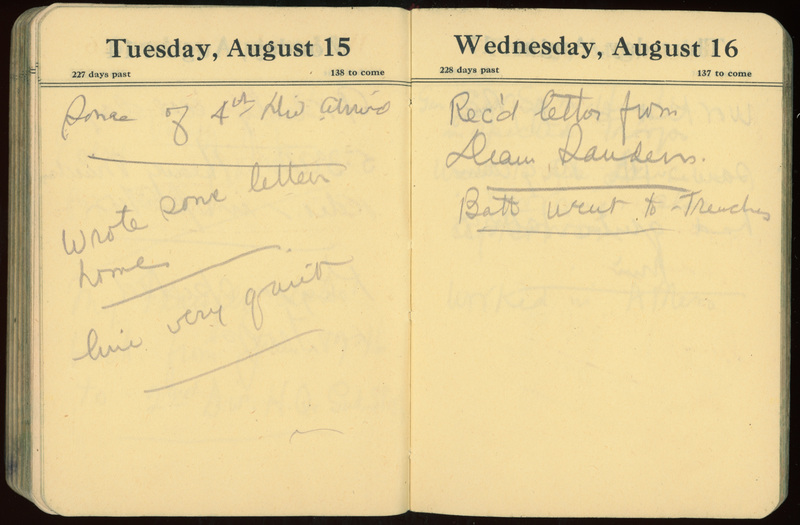 Tuesday, August 15
227 days past 138 to come
Some of 4th Div arrived
Wrote some letters
home
line very quiet
Wednesday, August 16
228 days past 137 to come
Rec'd letter from
Dean Sanders.
Batt went to Trenches